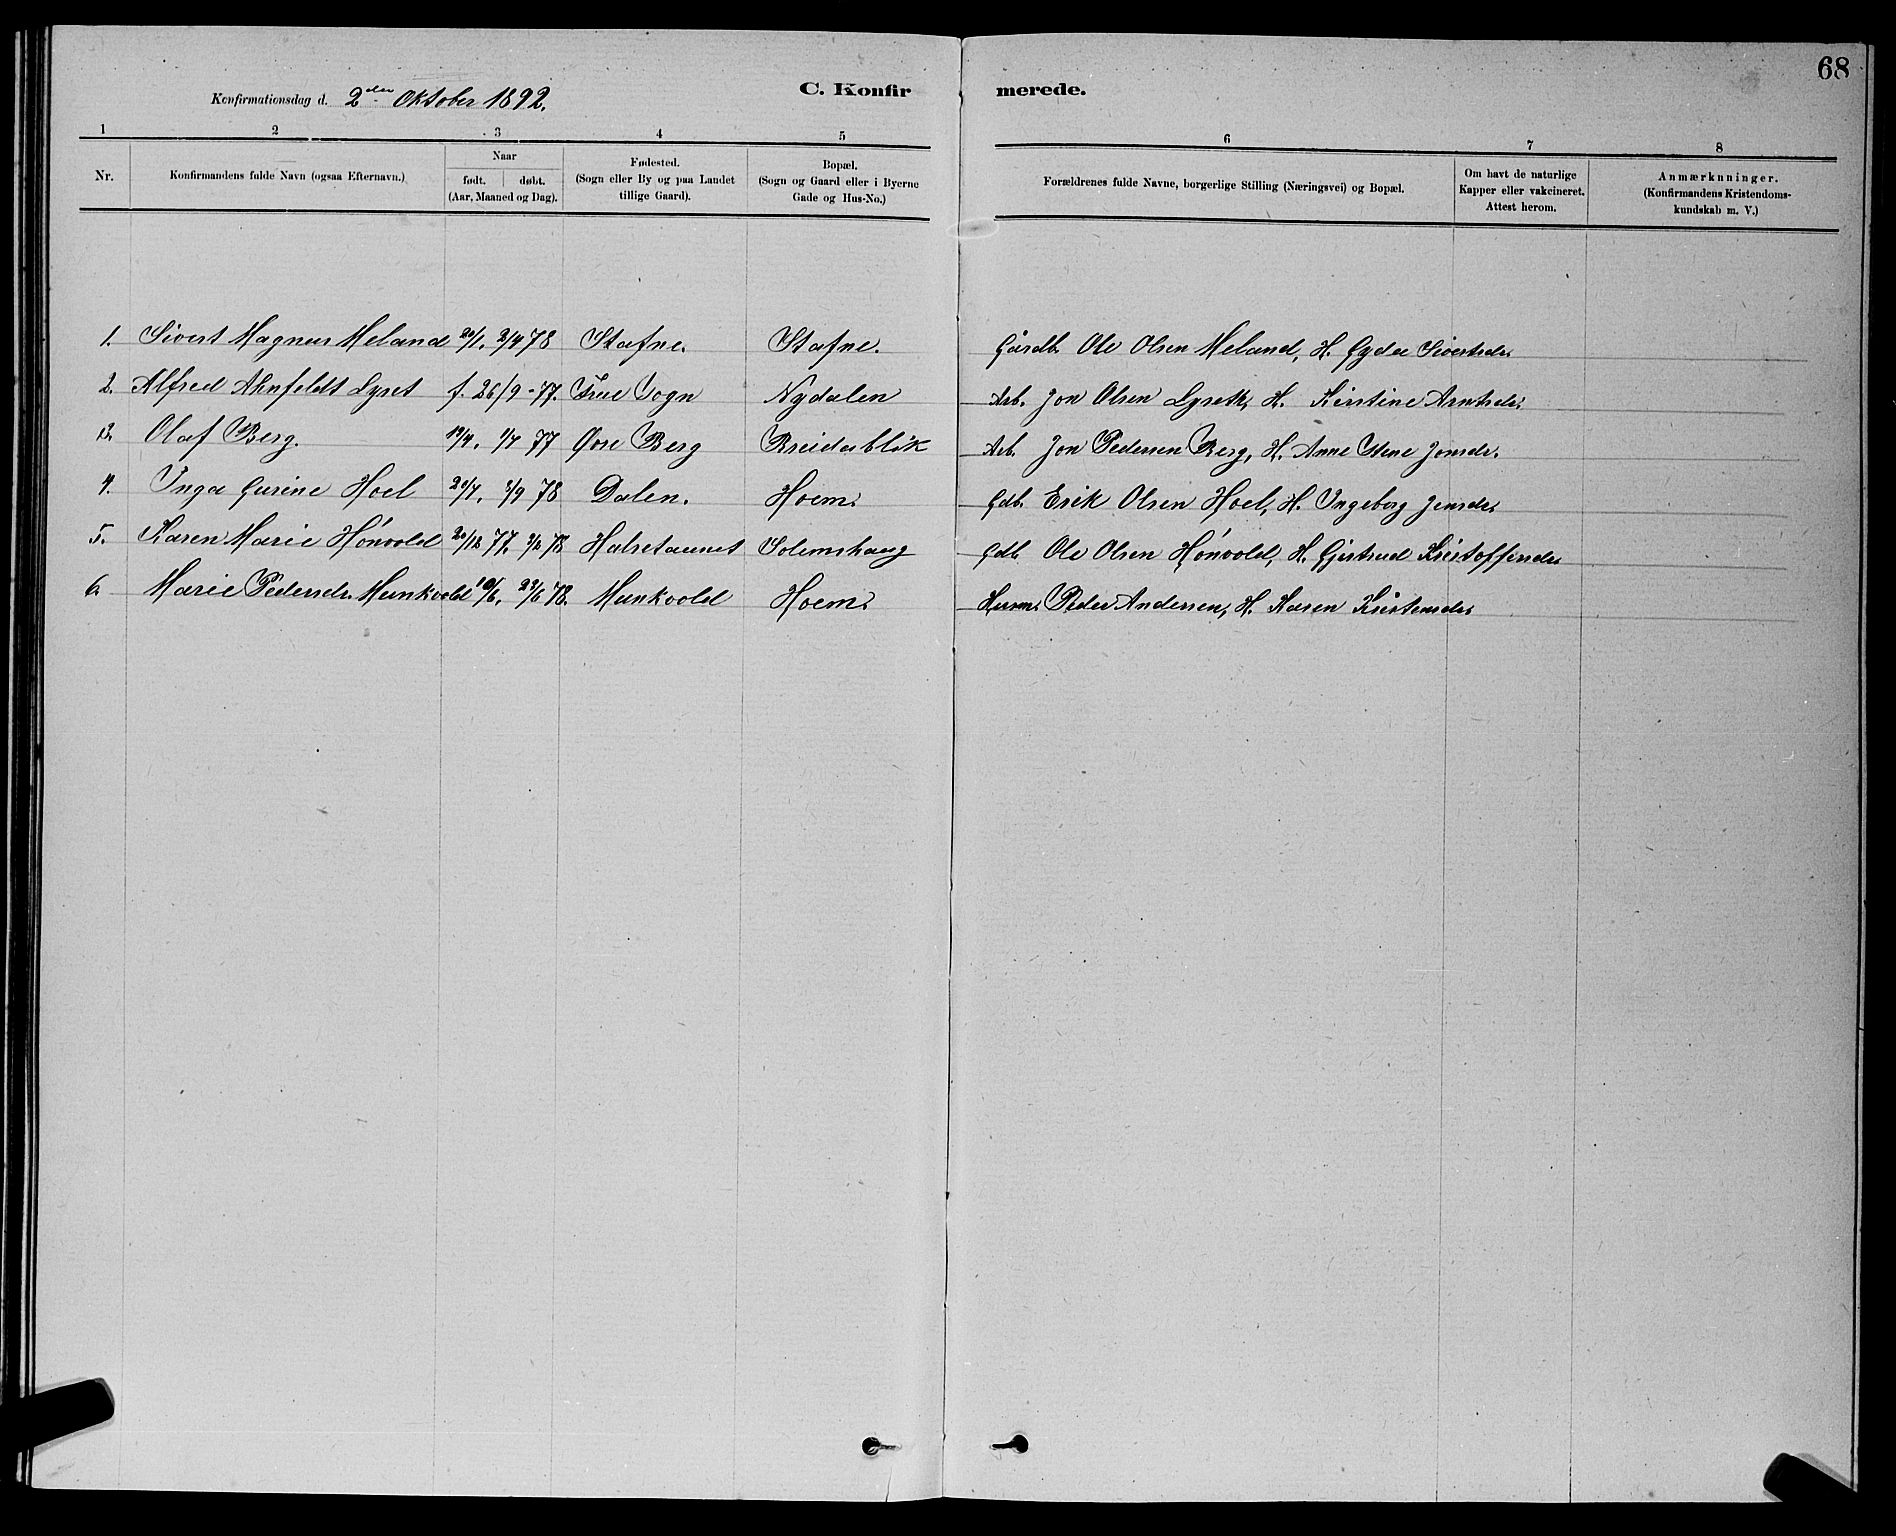 68
C. Konfirmerede.
Konfirmationsdag d. 2den Oktober 1892.
1 2 3 4 5 6 7 8
Nr. Konfirmandens fulde Navn (ogsaa Efternavn.) Naar født. døbt. (Aar, Maaned og Dag). Fødested. (Sogn eller By og paa Landet tillige Gaard). Bopæl. (Sogn og Gaard eller i Byerne Gade og Hus-No.) Forældrenes fulde Navne, borgerlige Stilling (Næringsvei) og Bopæl. Om havt de naturlige Kapper eller vakcineret. Attest herom. Anmærknninger. (Konfirmandens Kristendomskundskab m. V.)
1. Sivert Magnus Meland 20/1. 2/4 78 Stafne. Stafne. Gårdb. Ole Olsen Meland, H. Gyda Sivertsdr.
2. Alfred Ahnfeldt Lyset f. 26/9-77. Frue Sogn Nydalen Arb. Jon Olsen Lyseth, H. Kirstine Arntsdr.
3. Olaf Berg. 19/4. 1/7 77 Øvre Berg Breidablik Arb. Jon Pedersen Berg, H. Anne Stine Jonsdr.
4. Inga Gurine Hoel 20/7. 1/9 78 Dalen. Hoem. Gdb. Erik Olsen Hoel, H. Ingeborg Jensdr.
5. Karen Marie Hónvold 20/12 77. 3/2 78 Halsetaunet Solemshaug Gdb. Ole Olsen Hónvold, H. Gjertrud Kristoffersdr.
6. Marie Pedersdr. Munkvold 10/6. 23/6 78. Munkvold Hoem. Husm. Peder Andersen, H. Karen Kristensdr.